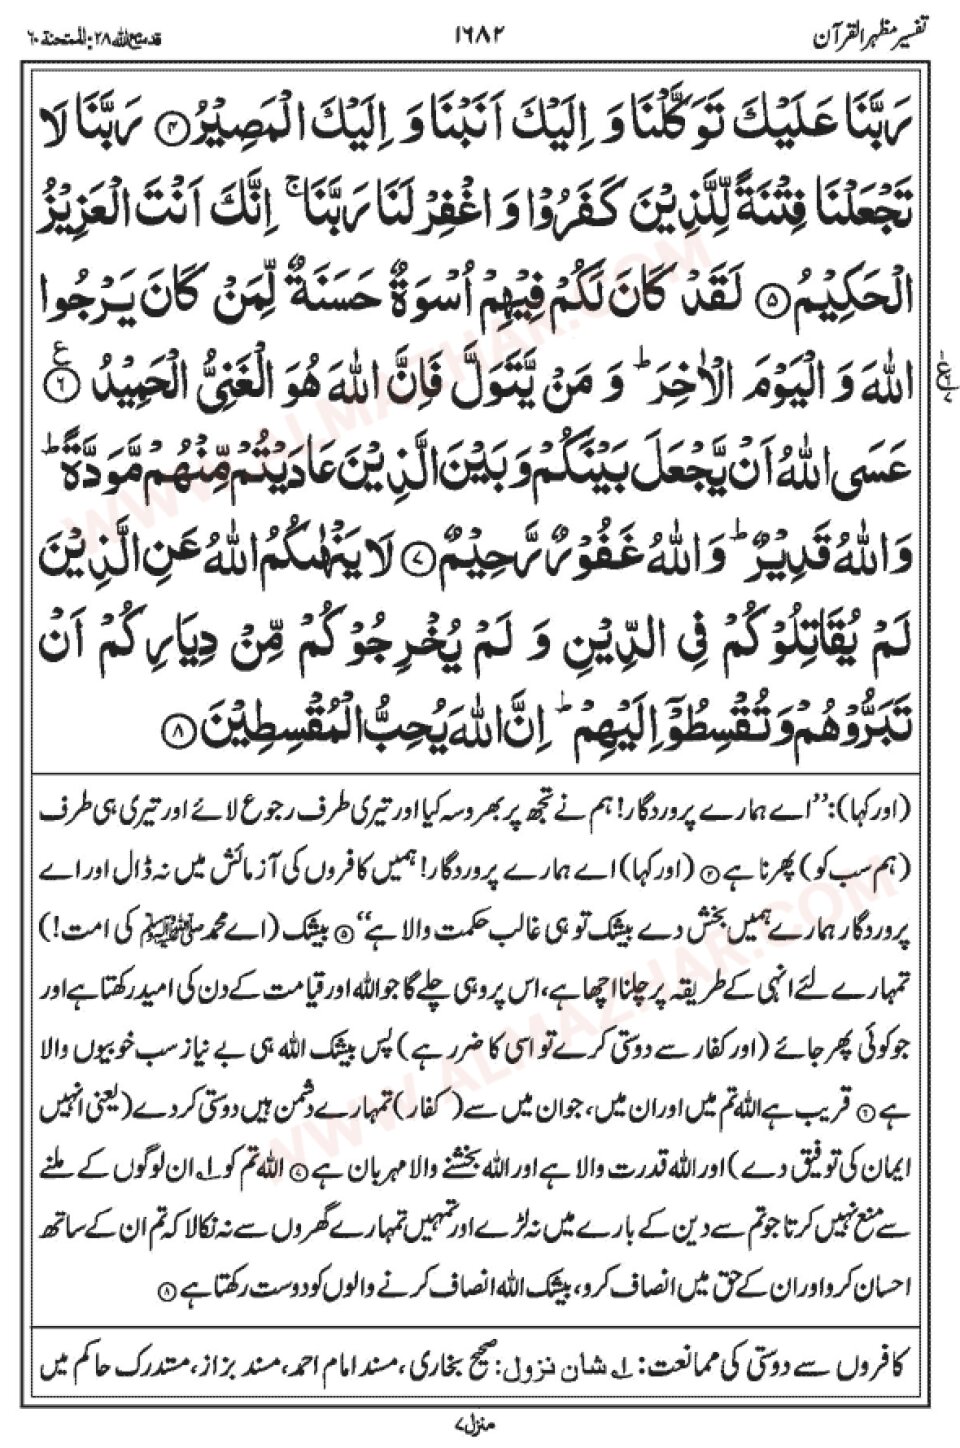 تفسیر مظہر القرآن ۱۶۸۲ قد سمع اللہ ۲۸: الممتحنۃ ۶۰
رَبَّنَا عَلَيْكَ تَوَكَّلْنَا وَ اِلَيْكَ اَنَبْنَا وَ اِلَيْكَ الْمَصِيْرُ ۴ رَبَّنَا لَا
تَجْعَلْنَا فِتْنَةً لِّلَّذِيْنَ كَفَرُوْا وَ اغْفِرْ لَنَا رَبَّنَا ۚ اِنَّكَ اَنْتَ الْعَزِيْزُ
الْحَكِيْمُ ۵ لَقَدْ كَانَ لَكُمْ فِيْهِمْ اُسْوَةٌ حَسَنَةٌ لِّمَنْ كَانَ يَرْجُوا
اللّٰهَ وَ الْيَوْمَ الْاٰخِرَ ؕ وَ مَنْ يَّتَوَلَّ فَاِنَّ اللّٰهَ هُوَ الْغَنِيُّ الْحَمِيْدُ ۶ ع
عَسَى اللّٰهُ اَنْ يَّجْعَلَ بَيْنَكُمْ وَ بَيْنَ الَّذِيْنَ عَادَيْتُمْ مِّنْهُمْ مَّوَدَّةً ؕ
وَ اللّٰهُ قَدِيْرٌ ؕ وَ اللّٰهُ غَفُوْرٌ رَّحِيْمٌ ۷ لَا يَنْهٰىكُمُ اللّٰهُ عَنِ الَّذِيْنَ
لَمْ يُقَاتِلُوْكُمْ فِي الدِّيْنِ وَ لَمْ يُخْرِجُوْكُمْ مِّنْ دِيَارِكُمْ اَنْ
تَبَرُّوْهُمْ وَ تُقْسِطُوْٓا اِلَيْهِمْ ؕ اِنَّ اللّٰهَ يُحِبُّ الْمُقْسِطِيْنَ ۸
(اور کہا): ’’اے ہمارے پروردگار! ہم نے تجھ پر بھروسہ کیا اور تیری طرف رجوع لائے اور تیری ہی طرف
(ہم سب کو) پھرنا ہے ۴ (اور کہا) اے ہمارے پروردگار! ہمیں کافروں کی آزمائش میں نہ ڈال اور اے
پروردگار ہمارے ہمیں بخش دے بیشک تو ہی غالب حکمت والا ہے‘‘ ۵ بیشک (اے محمد ﷺ کی امت!)
تمہارے لئے انہی کے طریقہ پر چلنا اچھا ہے، اس پر وہی چلے گا جو اللہ اور قیامت کے دن کی امید رکھتا ہے اور
جو کوئی پھر جائے (اور کفار سے دوستی کرے تو اسی کا ضرر ہے) پس بیشک اللہ ہی بے نیاز سب خوبیوں والا
ہے ۶ قریب ہے اللہ تم میں اور ان میں، جو ان میں سے (کفار) تمہارے دشمن ہیں دوستی کر دے (یعنی انہیں
ایمان کی توفیق دے) اور اللہ قدرت والا ہے اور اللہ بخشنے والا مہربان ہے ۷ اللہ تم کو ۱؎ ان لوگوں کے ملنے
سے منع نہیں کرتا جو تم سے دین کے بارے میں نہ لڑے اور تمہیں تمہارے گھروں سے نہ نکالا کہ تم ان کے ساتھ
احسان کرو اور ان کے حق میں انصاف کرو، بیشک اللہ انصاف کرنے والوں کو دوست رکھتا ہے ۸
کافروں سے دوستی کی ممانعت: ۱؎ شان نزول: صحیح بخاری، مسند امام احمد، مسند بزاز، مستدرک حاکم میں
منزل ۷
WWW.ALMAZHAR.COM
WWW.ALMAZHAR.COM